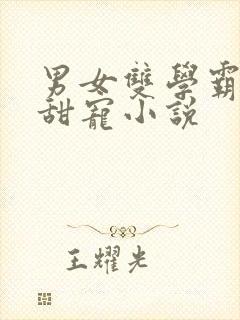 男女雙學霸
甜寵小説
王耀光